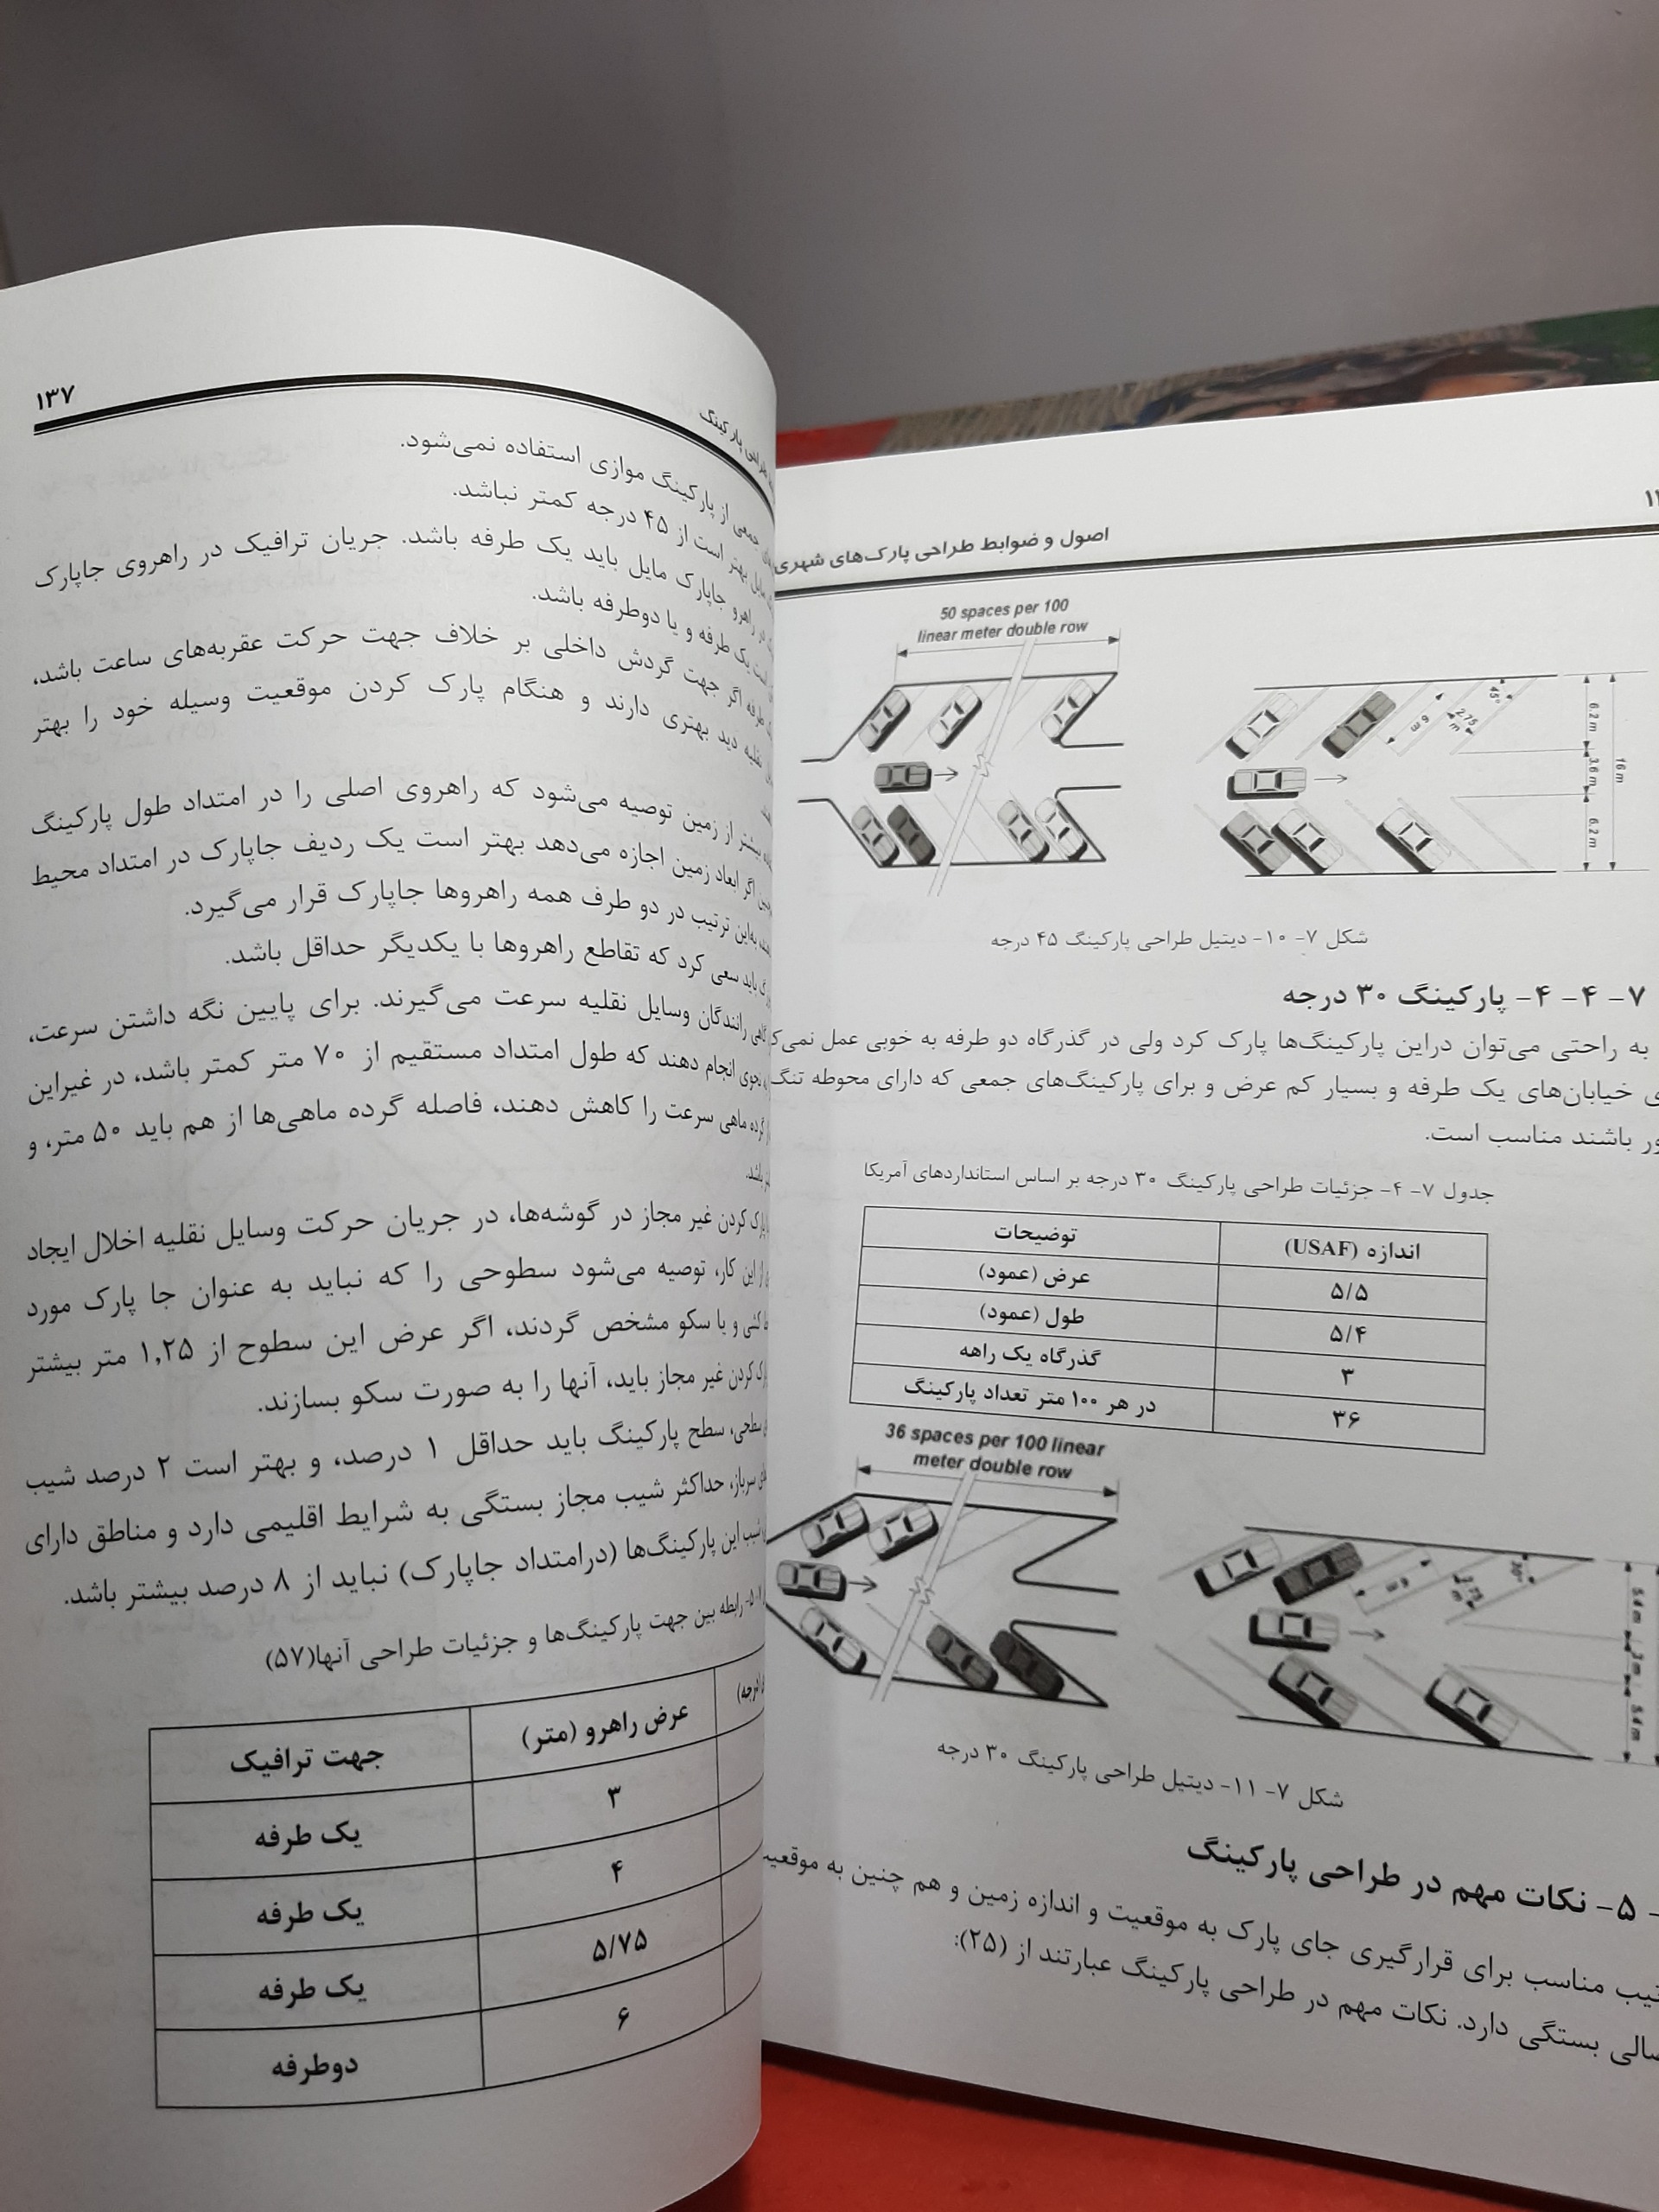 اصول و ضوابط طراحی پارک‌های شهری
50 spaces per 100
linear meter double row
45°
2.75 m
6.2 m
3.6 m
6.2 m
16 m
شکل ۷- ۱۰- دیتیل طراحی پارکینگ ۴۵ درجه
۷- ۴- ۴- پارکینگ ۳۰ درجه
به راحتی می‌توان دراین پارکینگ‌ها پارک کرد ولی در گذرگاه دو طرفه به خوبی عمل
خیابان‌های یک طرفه و بسیار کم عرض و برای پارکینگ‌های جمعی که دارای محوطه
باشند مناسب است.
جدول ۷- ۴- جزئیات طراحی پارکینگ ۳۰ درجه بر اساس استانداردهای آمریکا
اندازه (USAF) توضیحات
۵/۵ عرض (عمود)
۵/۴ طول (عمود)
۳ گذرگاه یک راهه
۳۶ در هر ۱۰۰ متر تعداد پارکینگ
36 spaces per 100 linear
meter double row
30°
5.4 m
3 m
5.4 m
شکل ۷- ۱۱- دیتیل طراحی پارکینگ ۳۰ درجه
۵- نکات مهم در طراحی پارکینگ
مناسب برای قرارگیری جای پارک به موقعیت و اندازه زمین و هم چنین به
بستگی دارد. نکات مهم در طراحی پارکینگ عبارتند از (۲۵):
پارکینگ ۱۳۷
جمعی از پارکینگ موازی استفاده نمی‌شود.
بهتر است از ۴۵ درجه کمتر نباشد.
راهرو جاپارک مایل باید یک طرفه باشد. جریان ترافیک در راهروی جاپارک
یک طرفه و یا دوطرفه باشد.
طرفه اگر جهت گردش داخلی بر خلاف جهت حرکت عقربه‌های ساعت باشد،
نقلیه دید بهتری دارند و هنگام پارک کردن موقعیت وسیله خود را بهتر
بیشتر از زمین توصیه می‌شود که راهروی اصلی را در امتداد طول پارکینگ
اگر ابعاد زمین اجازه می‌دهد بهتر است یک ردیف جاپارک در امتداد محیط
به‌این ترتیب در دو طرف همه راهروها جاپارک قرار می‌گیرد.
باید سعی کرد که تقاطع راهروها با یکدیگر حداقل باشد.
رانندگان وسایل نقلیه سرعت می‌گیرند. برای پایین نگه داشتن سرعت،
انجام دهند که طول امتداد مستقیم از ۷۰ متر کمتر باشد، در غیراین
ماهی سرعت را کاهش دهند، فاصله گرده ماهی‌ها از هم باید ۵۰ متر، و
باشد.
پارک کردن غیر مجاز در گوشه‌ها، در جریان حرکت وسایل نقلیه اخلال ایجاد
از این کار، توصیه می‌شود سطوحی را که نباید به عنوان جا پارک مورد
کشی و یا سکو مشخص گردند، اگر عرض این سطوح از ۱٫۲۵ متر بیشتر
کردن غیر مجاز باید، آنها را به صورت سکو بسازند.
سطحی، سطح پارکینگ باید حداقل ۱ درصد، و بهتر است ۲ درصد شیب
سرباز، حداکثر شیب مجاز بستگی به شرایط اقلیمی دارد و مناطق دارای
شیب این پارکینگ‌ها (درامتداد جاپارک) نباید از ۸ درصد بیشتر باشد.
۷-۵- رابطه بین جهت پارکینگ‌ها و جزئیات طراحی آنها(۵۷)
عرض راهرو (متر) جهت ترافیک
۳ یک طرفه
۴ یک طرفه
۵/۷۵ یک طرفه
۶ دوطرفه